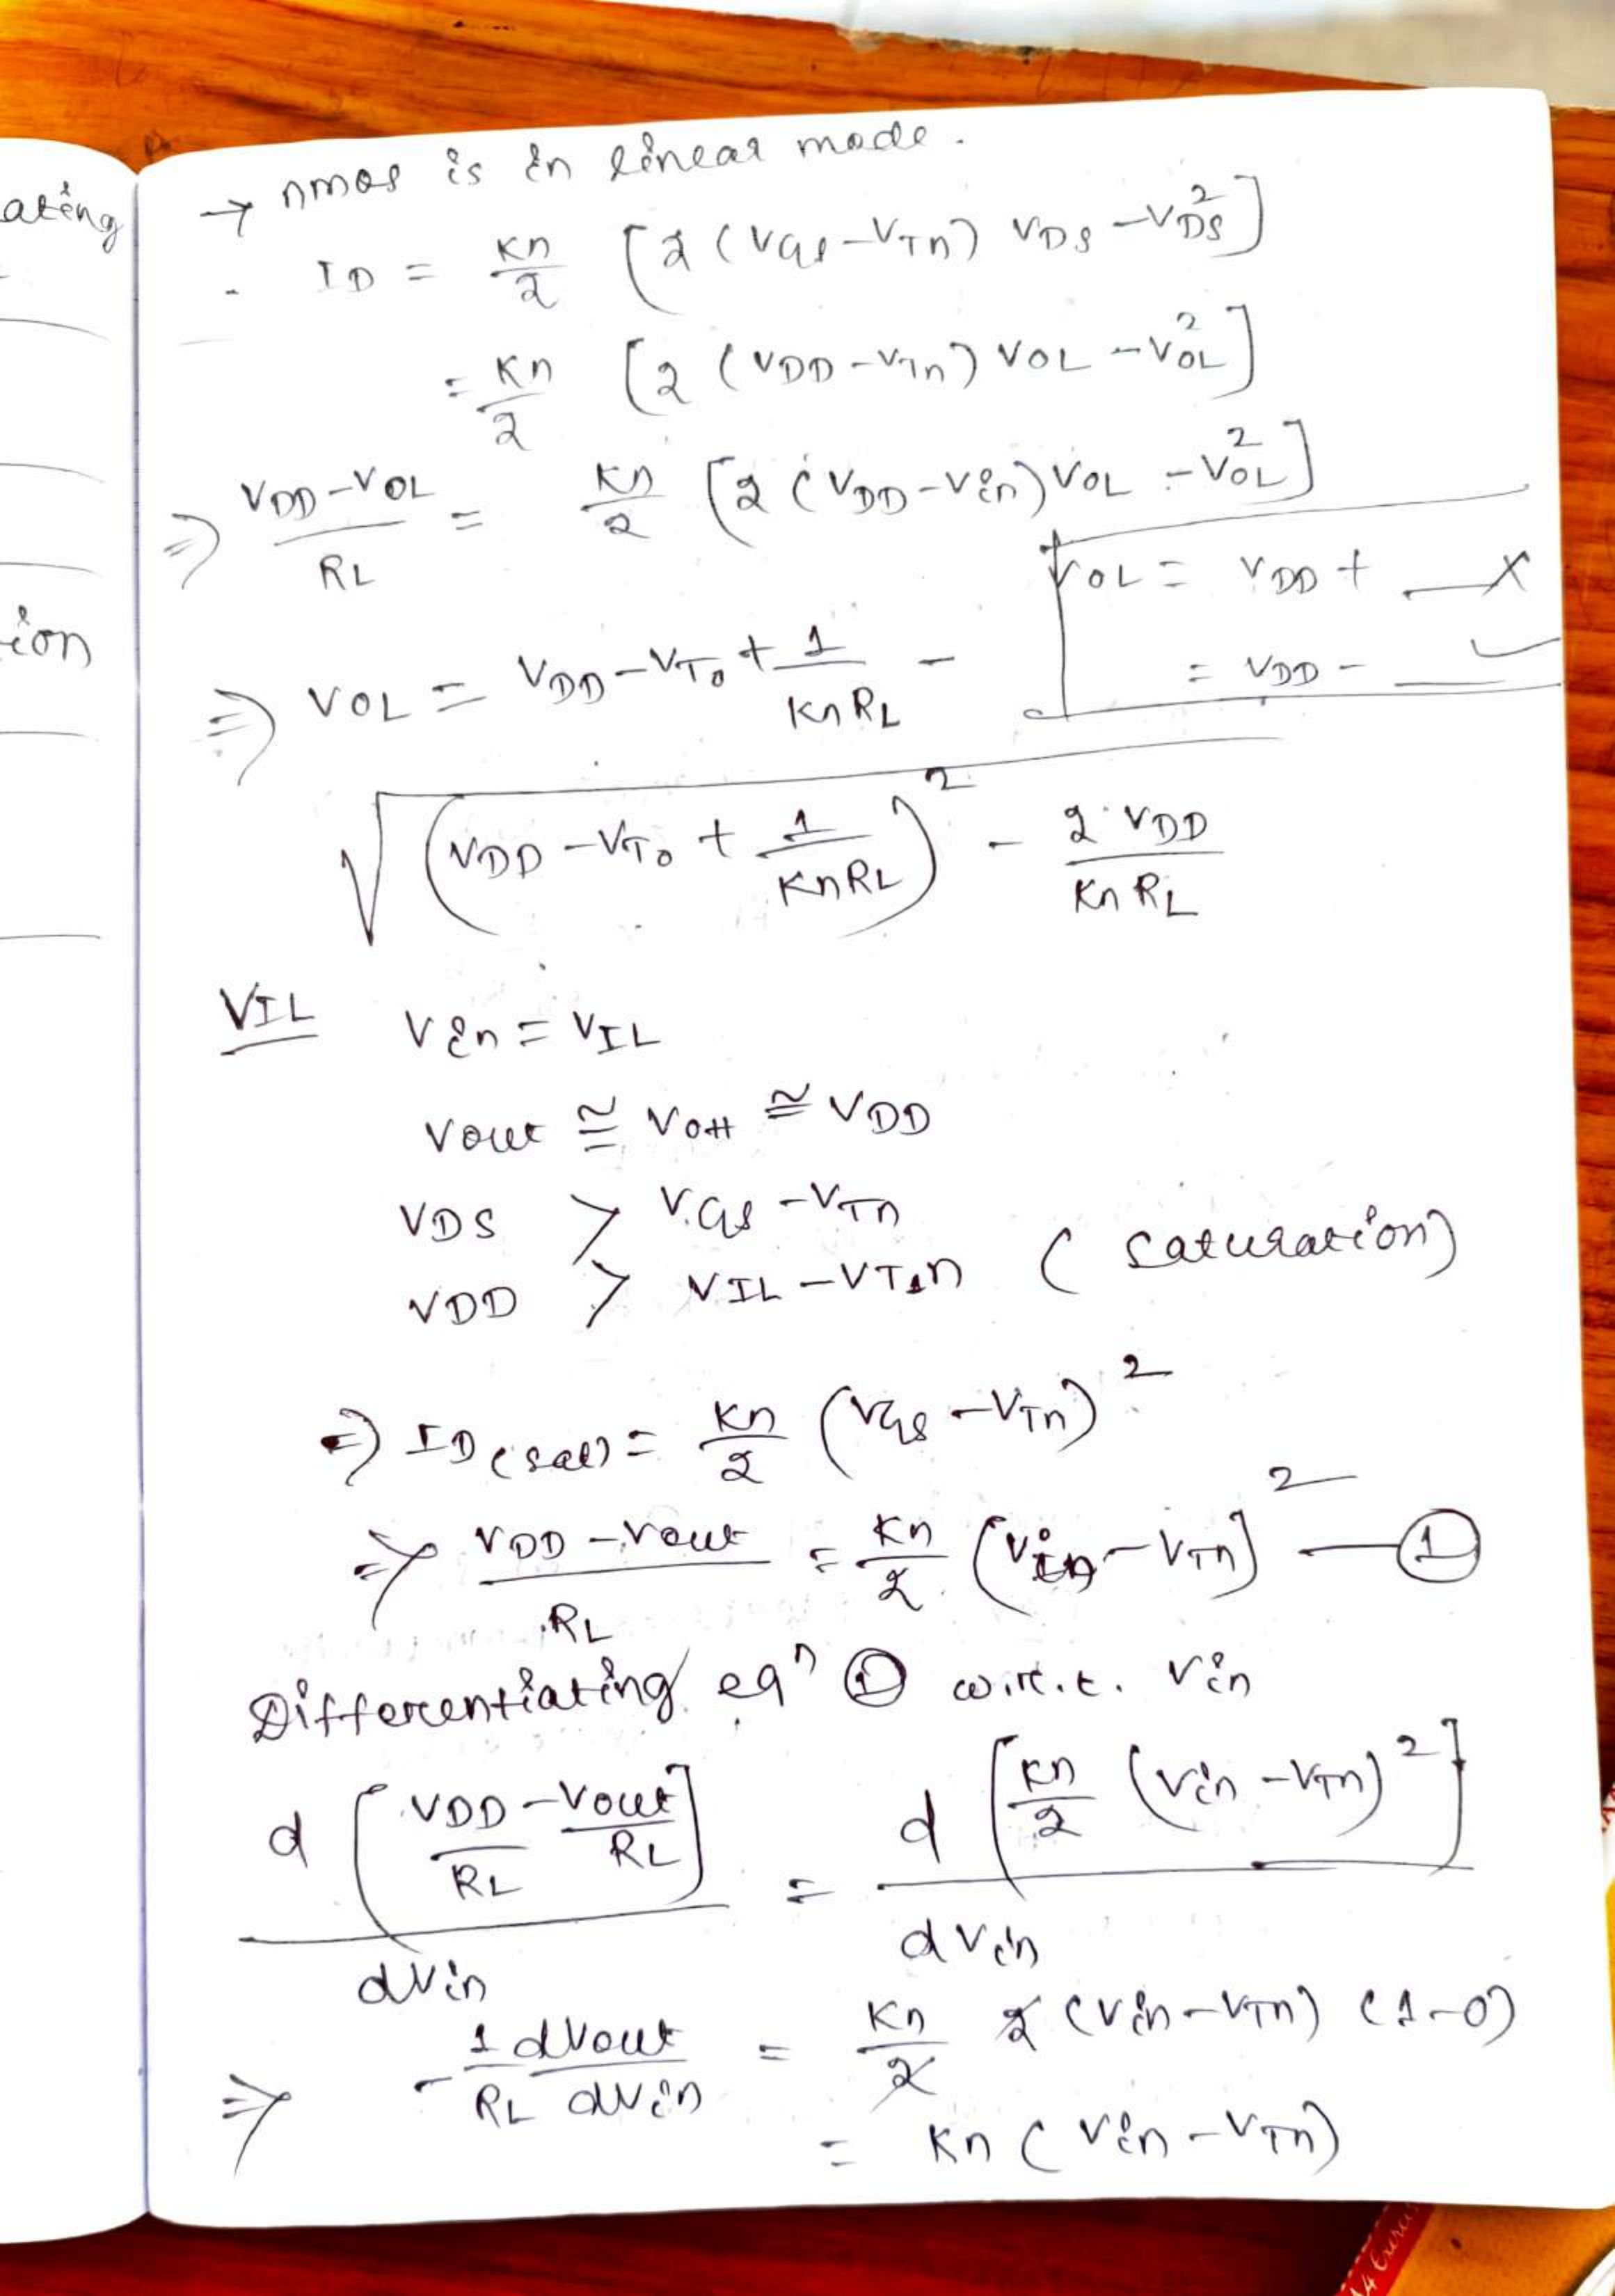 ating
ion
→ nmos is in linear mode.
ID = Kn/2 [2 (VGS - VTn) VDS - VDS²]
= Kn/2 [2 (VDD - VTn) VOL - VOL²]
⇒ (VDD - VOL)/RL = Kn/2 [2 (VDD - Vin) VOL - VOL²]
VOL = VDD + __ X
= VDD - __ ✓
⇒ VOL = VDD - VT0 + 1/(KnRL) -
√((VDD - VT0 + 1/(KnRL))² - 2 VDD/(Kn RL))
VIL Vin = VIL
Vout ≅ VOH ≅ VDD
VDS > VGS - VTn
VDD > VIL - VTn (saturation)
⇒ ID(sat) = Kn/2 (VGS - VTn)²
⇒ (VDD - Vout)/RL = Kn/2 (Vin - VTn)² — ①
Differentiating eqⁿ ① w.r.t. Vin
d[VDD/RL - Vout/RL]/dVin = d[Kn/2 (Vin - VTn)²]/dVin
⇒ - 1/RL dVout/dVin = Kn/2 2 (Vin - VTn) (1-0)
= Kn (Vin - VTn)